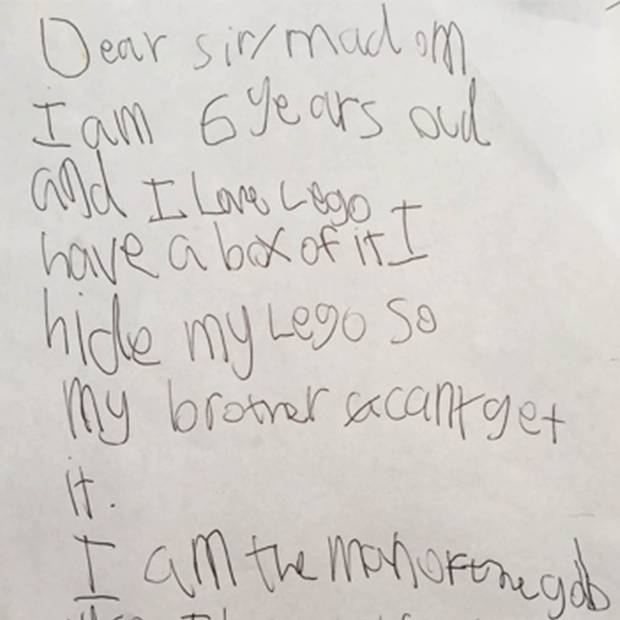 Dear sir/madom
I am 6 years oud
and I Love Lego I
have a box of it I
hide my Lego so
my brother cant get
it.
I am the man for the gob